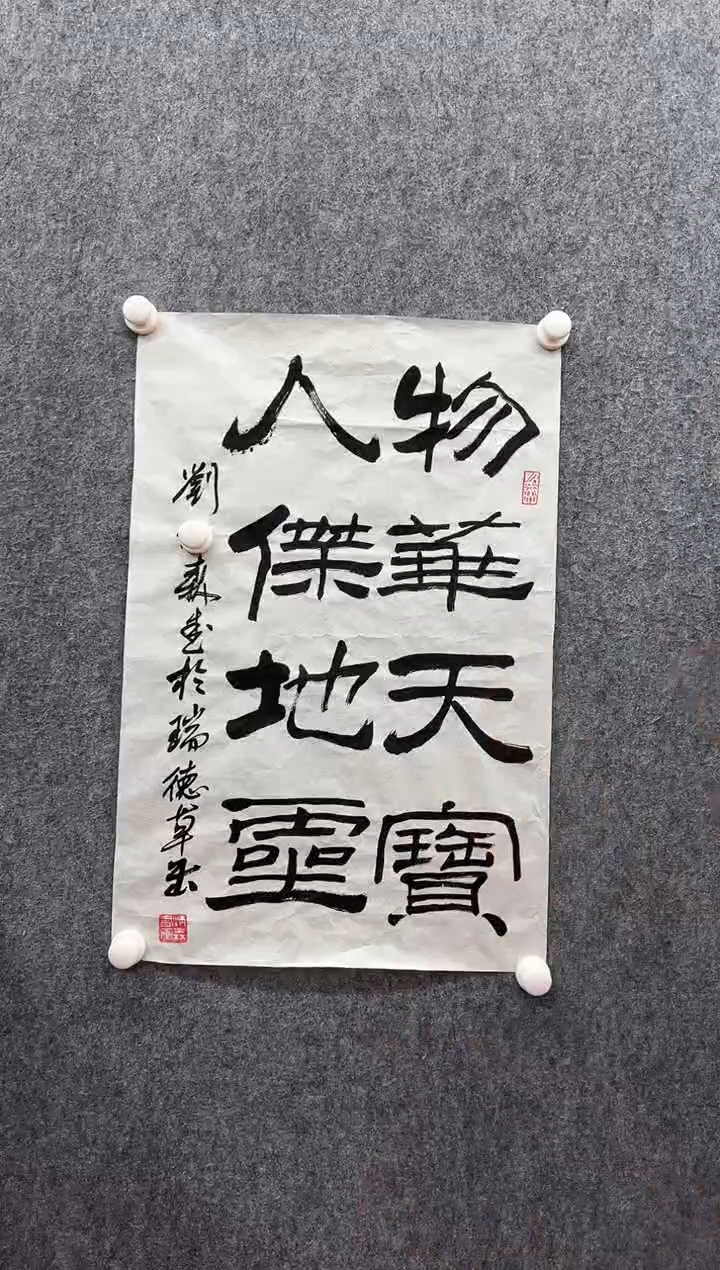 物華天寶
人傑地靈
劉森書於瑞德草堂